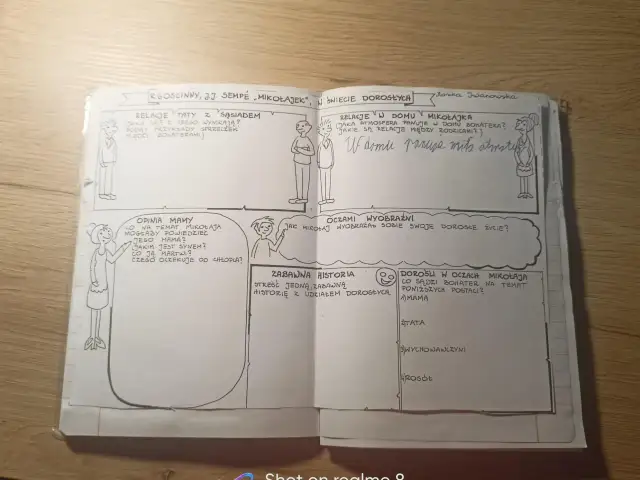 R. GOŚCINNY, J.J. SEMPÉ „MIKOŁAJEK", W ŚWIECIE DOROSŁYCH
Iwanowska
RELACJE TATY Z SĄSIADEM
RELACJE W DOMU MIKOŁAJKA
(JAKA ATMOSFERA PANUJE W DOMU BOHATERA?
JAKIE SĄ RELACJE MIĘDZY RODZICAMI?)
W domu panuje miła atmosfera
OPINIA MAMY
CO NA TEMAT MIKOŁAJA
MOGŁABY POWIEDZIEĆ
JEGO MAMA?
JAKIM JEST SYNEM?
CO JĄ MARTWI?
CZEGO OCZEKUJE OD CHŁOPCA?
OCZAMI WYOBRAŹNI
JAK MIKOŁAJ WYOBRAŻA SOBIE SWOJE DOROSŁE ŻYCIE?
ZABAWNA HISTORIA
STREŚĆ JEDNĄ, ZABAWNĄ
HISTORIĘ Z UDZIAŁEM DOROSŁYCH
DOROŚLI W OCZACH MIKOŁAJA
CO SĄDZI BOHATER NA TEMAT
PONIŻSZYCH POSTACI?
1. MAMA
2. TATA
3. WYCHOWAWCZYNI
4. ROSÓŁ
Shot on realme 8